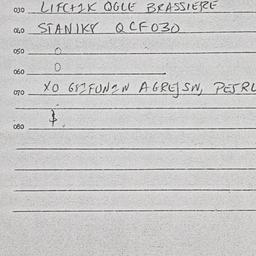 030 LIFCHIK OGLE BRASSIERE
040 STANIKY QCF030
050 O
060 O
070 XO
080 $.